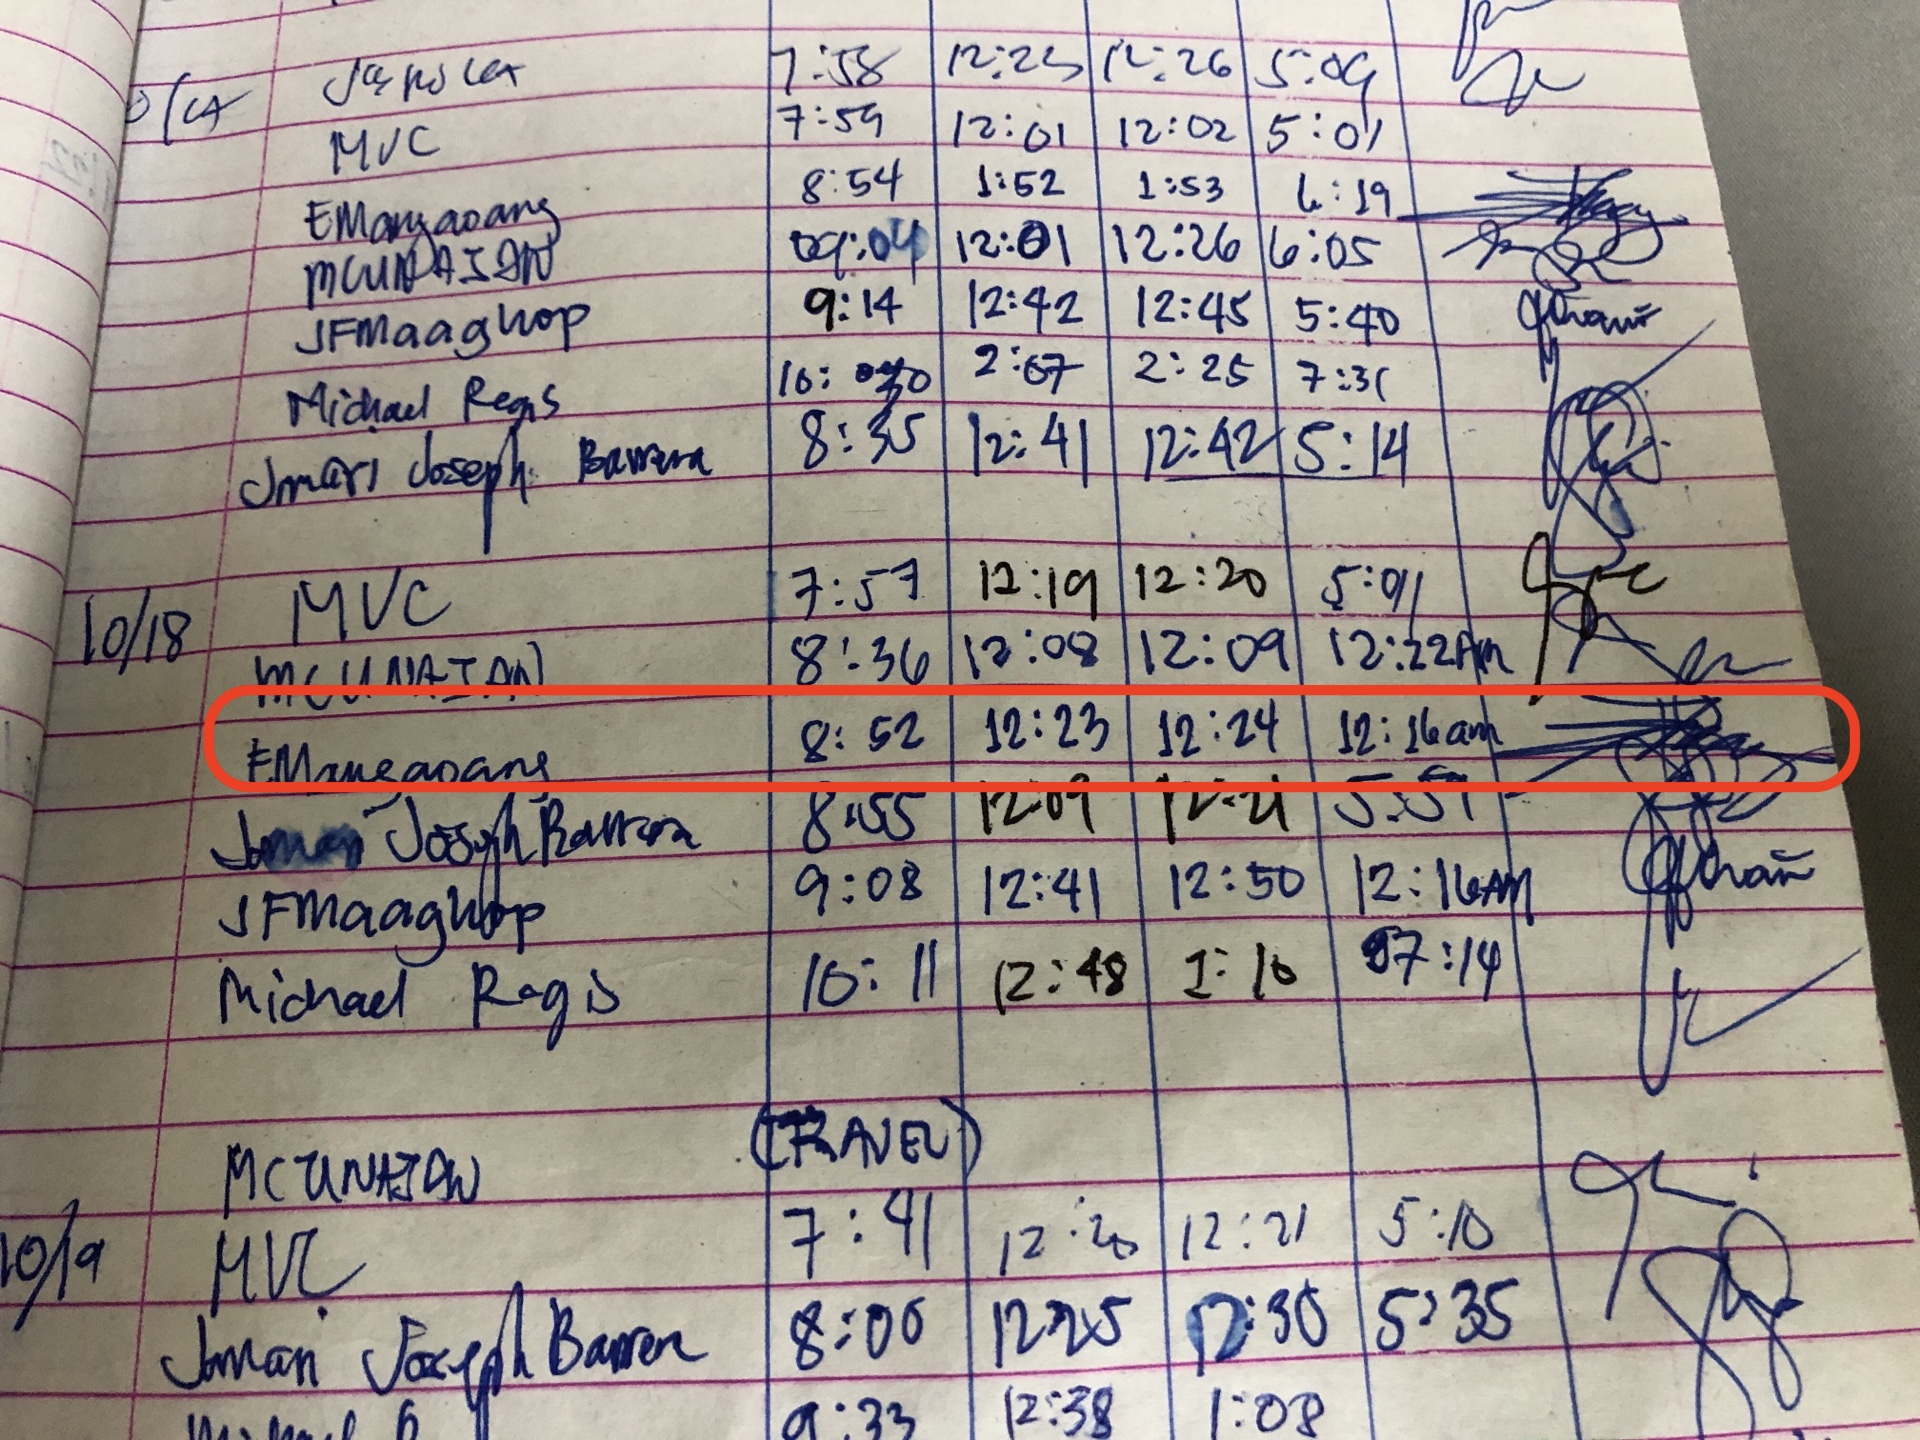 7:58 12:25 12:26 5:09
MVC 7:59 12:01 12:02 5:01
EMangaoang 8:54 1:52 1:53 6:19
MCUNAJAN 09:04 12:01 12:26 6:05
JFMaaghop 9:14 12:42 12:45 5:40
Michael Regis 10:30 2:07 2:25 7:31
Jmari Joseph Barrera 8:35 12:41 12:42 5:14
10/18 MVC 7:57 12:19 12:20 5:01
MCUNAJAN 8:36 12:08 12:09 12:22AM
EMangaoang 8:52 12:23 12:24 12:16am
Joseph Barrera 8:55 12:09 12:21 5:51
JFMaaghop 9:08 12:41 12:50 12:16AM
Michael Regis 10:11 12:48 1:10 07:14
MCUNAJAN (TRAVEL)
10/19 MVC 7:41 12:20 12:21 5:10
Jomari Joseph Barrera 8:00 12:25 12:30 5:35
Michael R 9:33 12:38 1:08